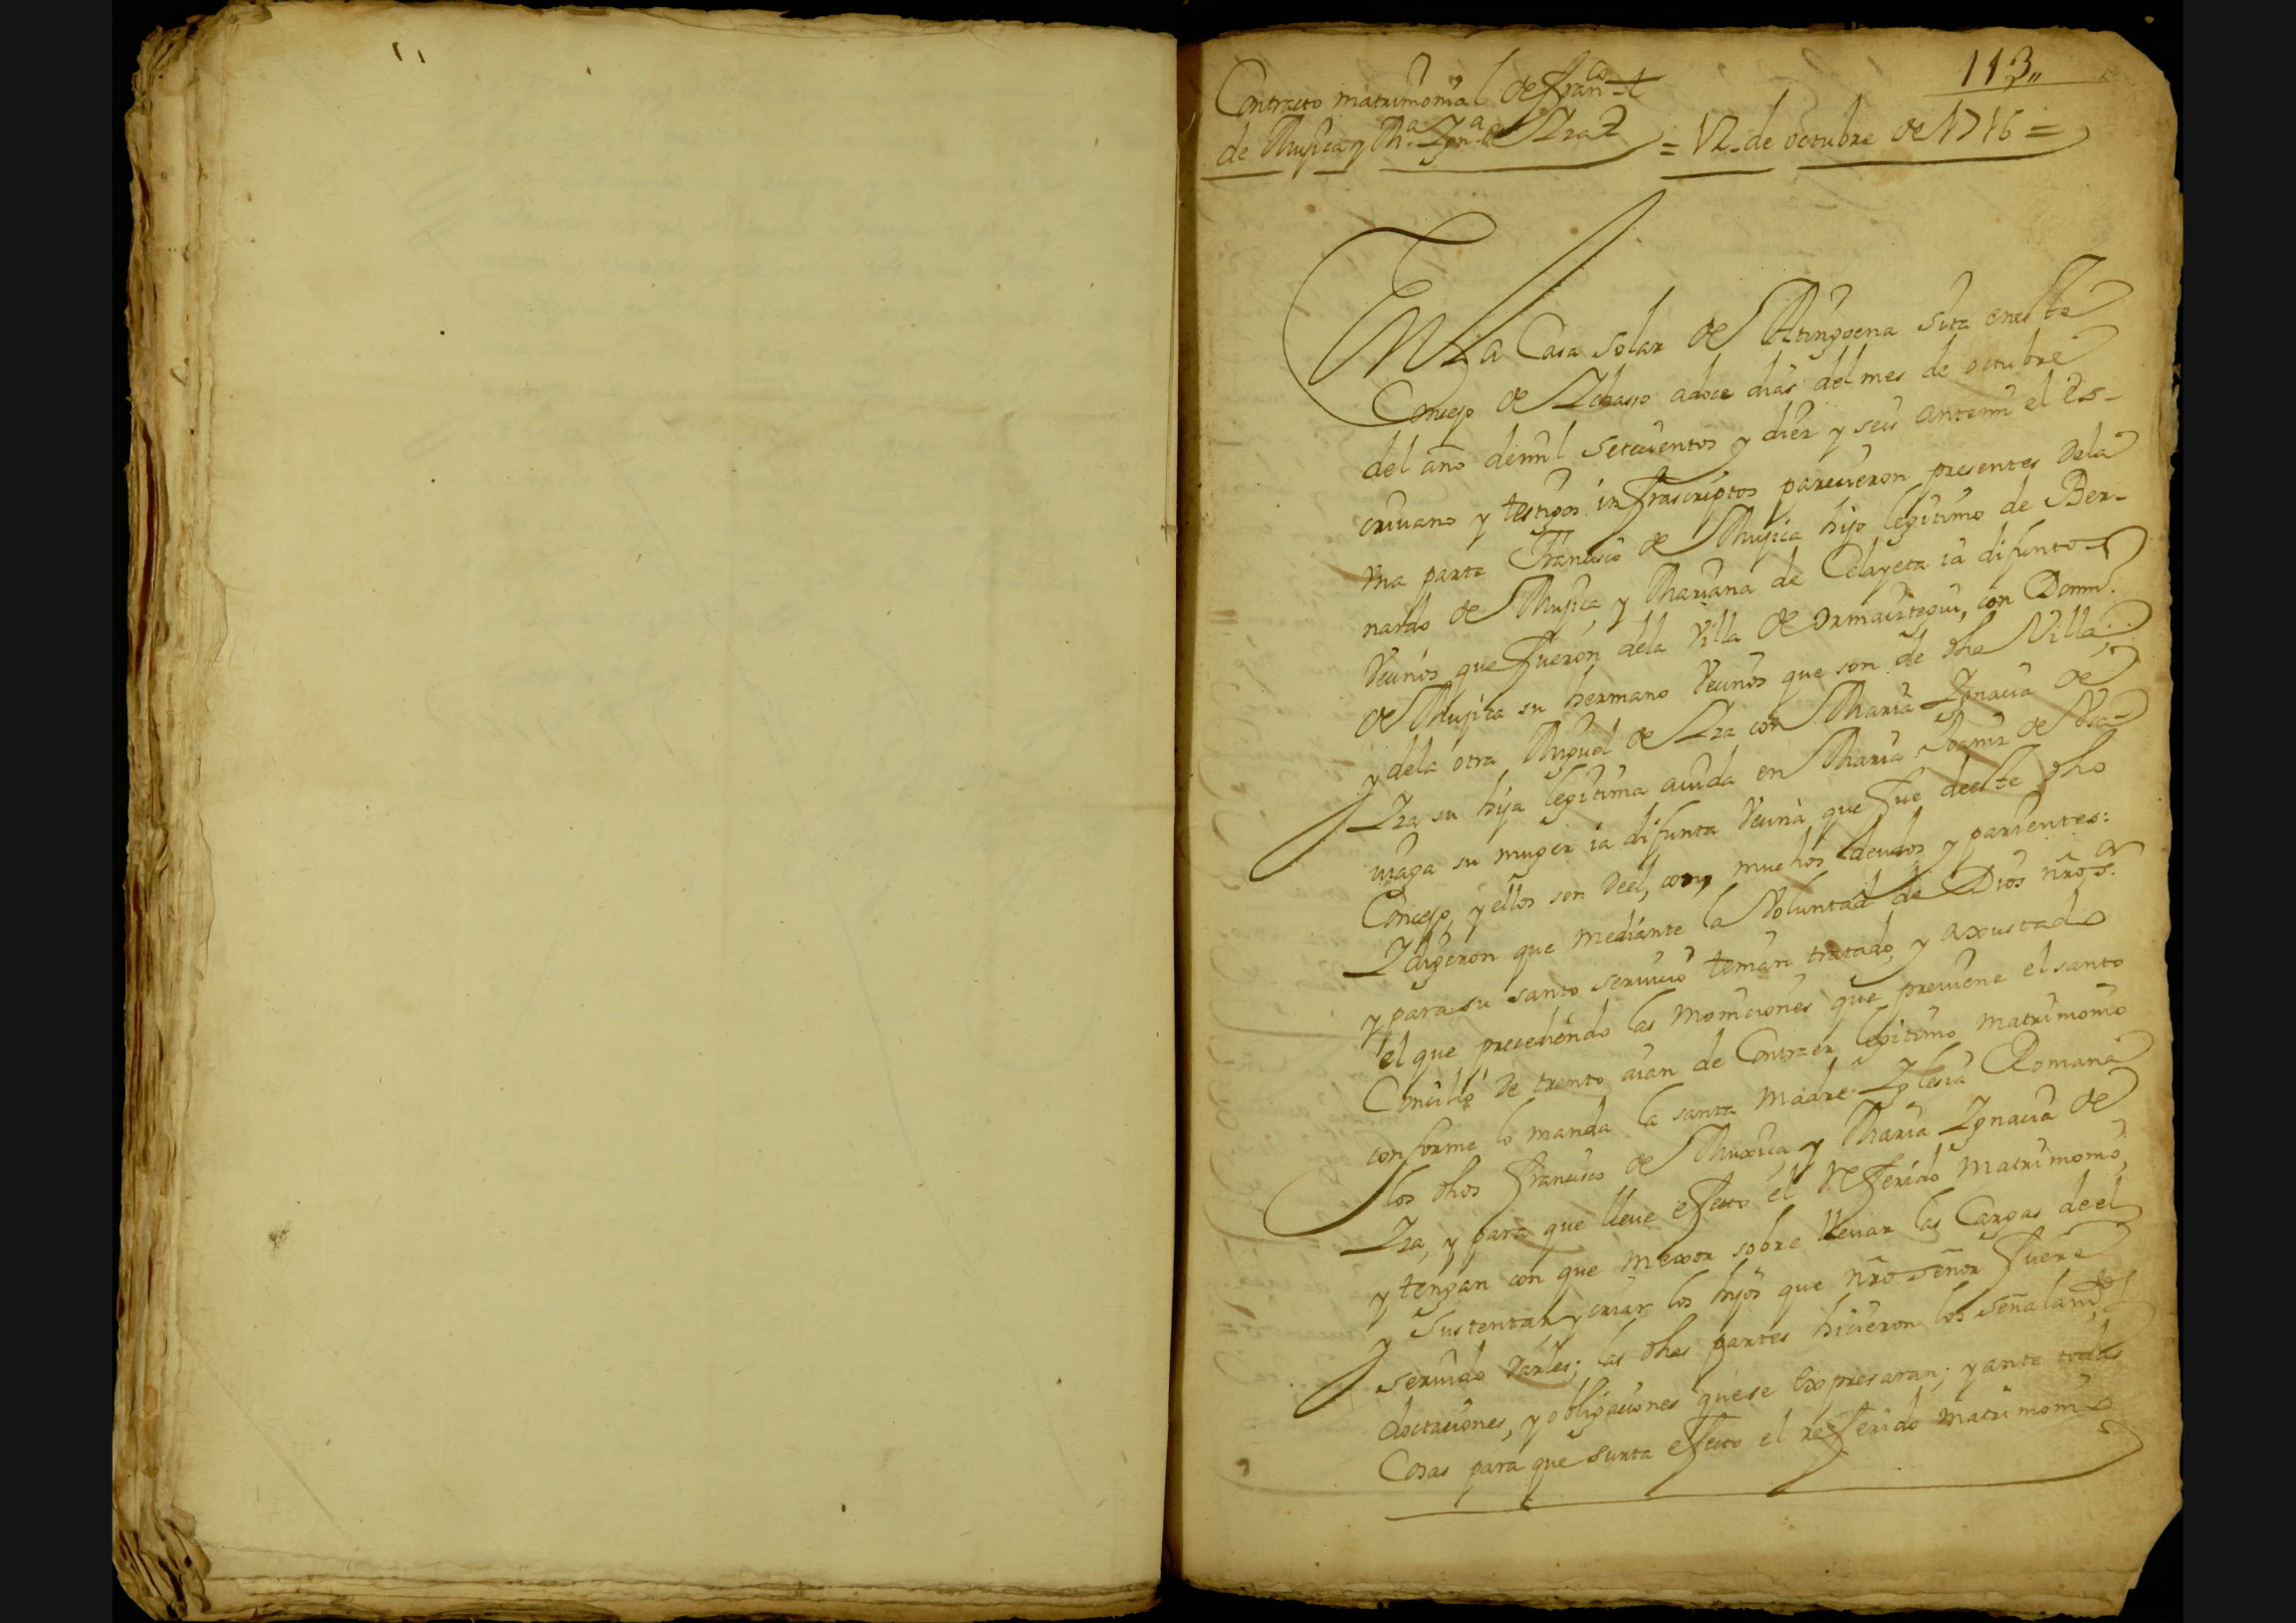 113,,
Contracto matrimonial de Fran.co
de Mujica y M.a Ygn.a de Yza = 12 de octubre de 1716 =
En La Casa solar de Atingoena sita eneste
Concejo de Ychasso adoce dias del mes de octubre
del año demil setecientos y diez y seis antemi el es-
criuano y testigos infrascriptos parecieron presentes dela
vna parte Francisco de Mujica hijo legitimo de Ber-
nardo de Mujica, y Mariana de Celayeta ia difuntos
Vecinos que fueron dela Villa de Ormaiztegui, con Domin.o
de Mujica su hermano Vecinos que son de dha Villa;
y dela otra Miguel de Yza con Maria Ygnacia de
Yza su hija legitima auida en Maria Joaniz de
uiaga su muger ia difunta Vecina que fue deeste dho
Concejo, y ellos son deel, con, muchos deudos y parientes:
Y digeron que mediante la Voluntad de Dios nro s.or
y para su santo seruicio tenian tratado, y axustado
el que precediendo las moniciones que preuiene el santo
Concilio de trento aian de Contraer legitimo matrimonio
conforme lo manda la santa Madre Yglesia Romana
los dhos Francisco de Muxica, y Maria Ygnacia de
Yza, y para que lleue efecto el Referido Matrimonio,
y tengan con que mexor sobre lleuar las Cargas deel
y sustentar y criar los hijos que nro señor fuere
seruido darles; las dhas partes hicieron los señalam.tos
doctaciones, y obligaciones quese expresaran; y ante todas
Cosas para que surta efecto el referido matrimonio